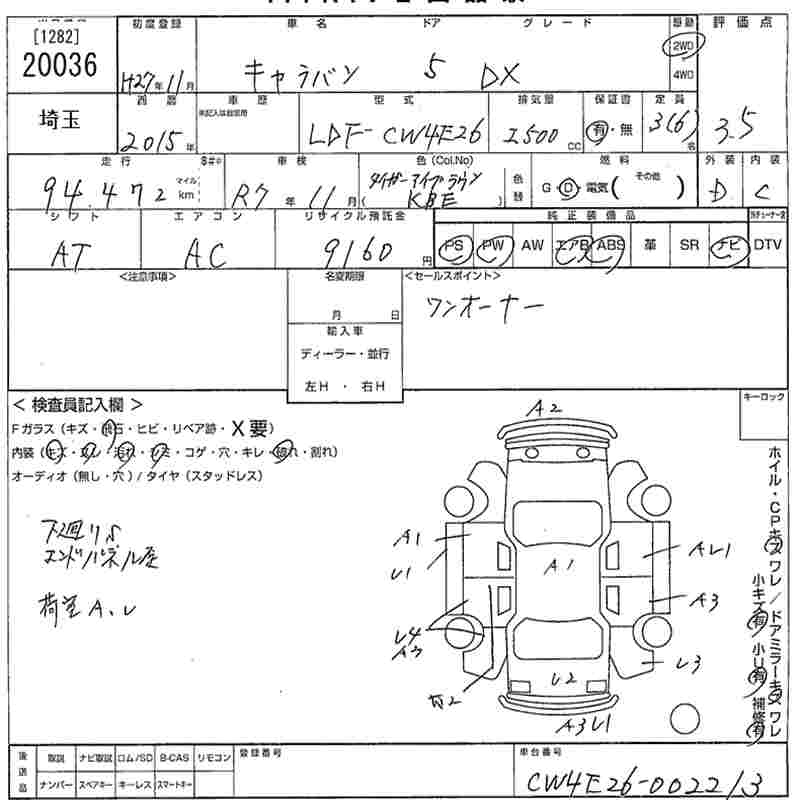 [1282]
20036
初度登録 車名 ドア グレード 駆動 評価点
H27年11月 キャラバン 5 DX 2WD 4WD
埼玉
西暦 車歴 型式 排気量 保証書 定員
未記入は自家用
2015年 LDF-CW4E26 2500cc 有・無 3(6)名 3.5
走行 車検 色(Col.No) 色替 燃料 外装 内装
94,472 マイル km R7年11月 (タイガーアイブラウン KBE) G・D・電気(その他) D C
シフト エアコン リサイクル預託金 純正装備品
AT AC 9160円 PS PW AW エアB ABS 革 SR ナビ DTV
<注意事項> 名変期限 <セールスポイント>
月 日 ワンオーナー
輸入車
ディーラー・並行
左H ・ 右H
<検査員記入欄> キーロック
Fガラス(キズ・飛石・ヒビ・リペア跡・X要)
オーディオ(無し・穴)/タイヤ(スタッドレス)
下廻りS
エンドパネル歪
荷室A、U
A2
A1
U1
A1
AU1
A3
U4
A3
U3
U2
A3U1
ホイル・CPキズワレ/ドアミラーキズワレ
小キズ有 小U有 補修有
後送品 取説 ナビ取説 ロム/SD B-CAS リモコン 登録番号 車台番号
ナンバー スペアキー キーレス スマートキー CW4E26-002213